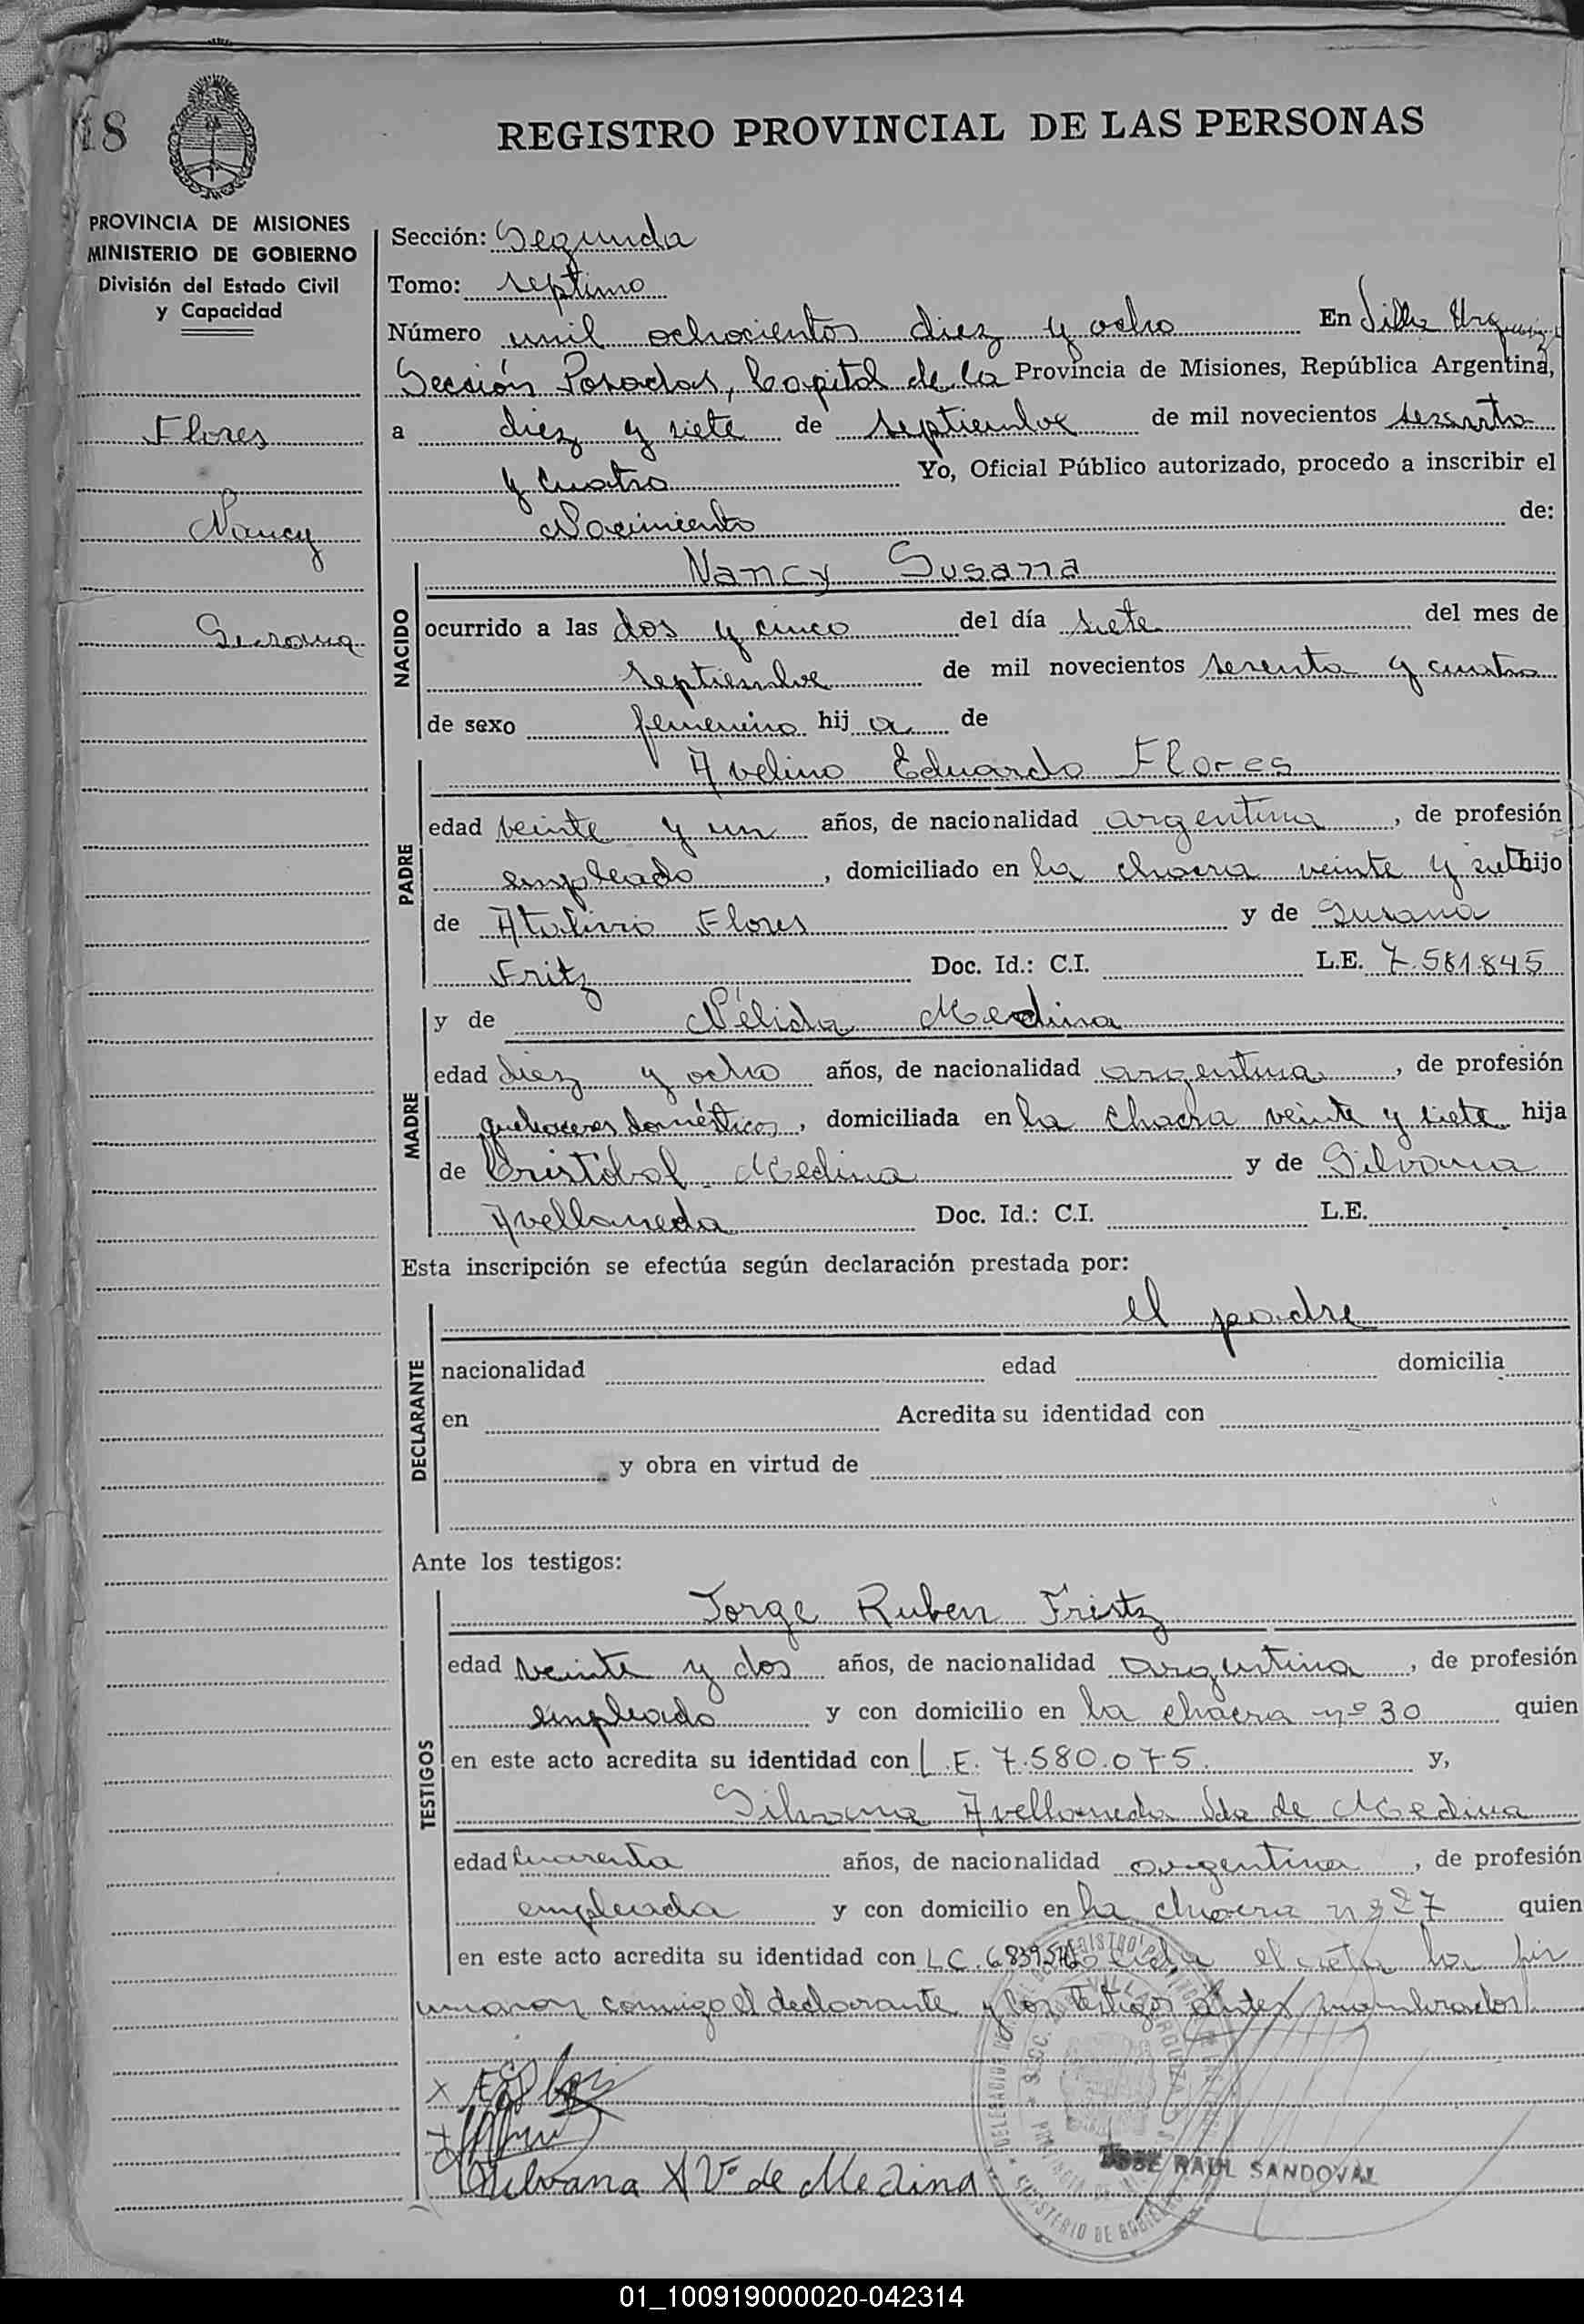 18
REGISTRO PROVINCIAL DE LAS PERSONAS
PROVINCIA DE MISIONES
MINISTERIO DE GOBIERNO
División del Estado Civil
y Capacidad
Flores
Nancy
Susana
Sección: Segunda
Tomo: septimo
Número mil ochocientos diez y ocho En Villa Urquiza
Sección Posadas, Capital de la Provincia de Misiones, República Argentina,
a diez y siete de septiembre de mil novecientos sesenta
y cuatro Yo, Oficial Público autorizado, procedo a inscribir el
Nacimiento de:
NACIDO
Nancy Susana
ocurrido a las dos y cinco del día siete del mes de
septiembre de mil novecientos sesenta y cuatro
de sexo femenino hij a de
PADRE
Avelino Eduardo Flores
edad veinte y un años, de nacionalidad argentina, de profesión
empleado, domiciliado en la chacra veinte y siete hijo
de Atalivio Flores y de Susana
Fritz Doc. Id.: C.I. L.E. 7.581.845
MADRE
y de Nélida Medina
edad diez y ocho años, de nacionalidad argentina, de profesión
quehaceres domésticos, domiciliada en la chacra veinte y siete hija
de Cristóbal Medina y de Silvana
Avellaneda Doc. Id.: C.I. L.E.
Esta inscripción se efectúa según declaración prestada por:
DECLARANTE
el padre
nacionalidad edad domicilia
en Acredita su identidad con
y obra en virtud de
Ante los testigos:
TESTIGOS
Jorge Ruben Fritz
edad veinte y dos años, de nacionalidad argentina, de profesión
empleado y con domicilio en la chacra nº 30 quien
en este acto acredita su identidad con L.E. 7.580.075. y,
Silvana Avellaneda Vda de Medina
edad cuarenta años, de nacionalidad argentina, de profesión
empleada y con domicilio en la chacra nº 27 quien
en este acto acredita su identidad con L.C. el acta la fir
maron conmigo el declarante y los testigos antes nombrados
Silvana A Vª de Medina
JOSE RAUL SANDOVAL
01_100919000020-042314